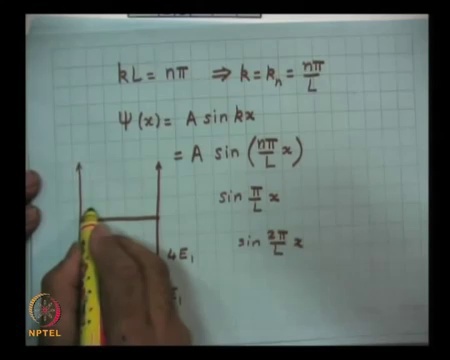 kL = nπ ⇒ k = kₙ = nπ/L
Ψ(x) = A sin kx
= A sin (nπ/L x)
sin π/L x
sin 2π/L x
4E₁
E₁
NPTEL